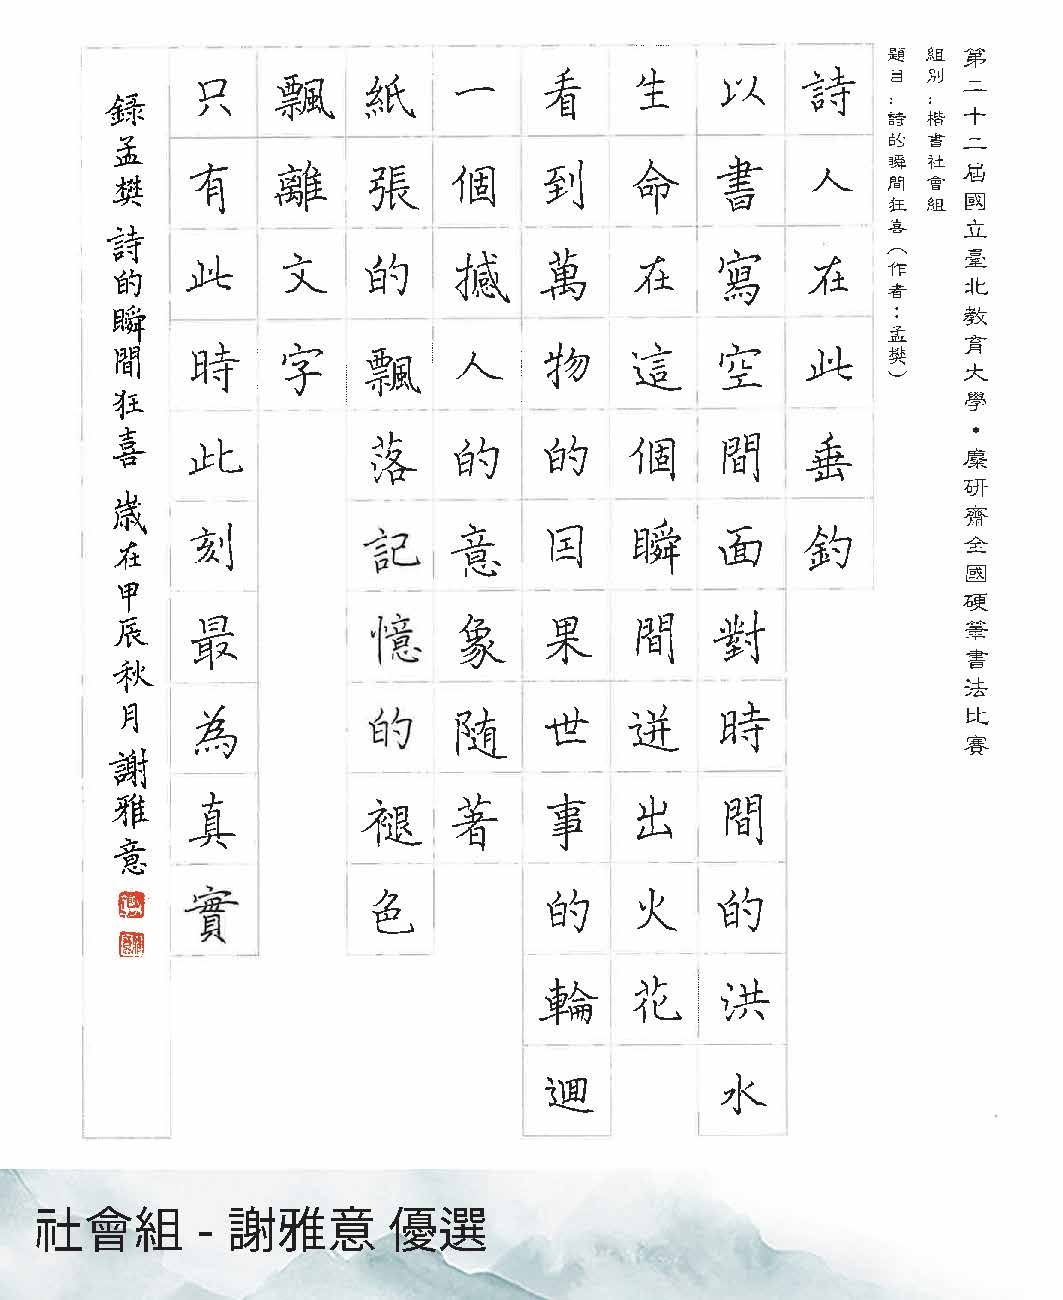 第二十二屆國立臺北教育大學•麋研齋全國硬筆書法比賽
組別：楷書社會組
題目：詩的瞬間狂喜（作者：孟樊）
詩人在此垂釣
以書寫空間面對時間的洪水
生命在這個瞬間迸出火花
看到萬物的因果世事的輪迴
一個撼人的意象随著
紙張的飄落記憶的褪色
飄離文字
只有此時此刻最為真實
錄孟樊 詩的瞬間狂喜 歲在甲辰秋月 謝雅意
社會組 - 謝雅意 優選